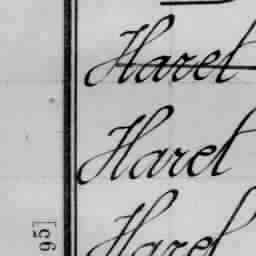 Haret
Haret
Haret
95]